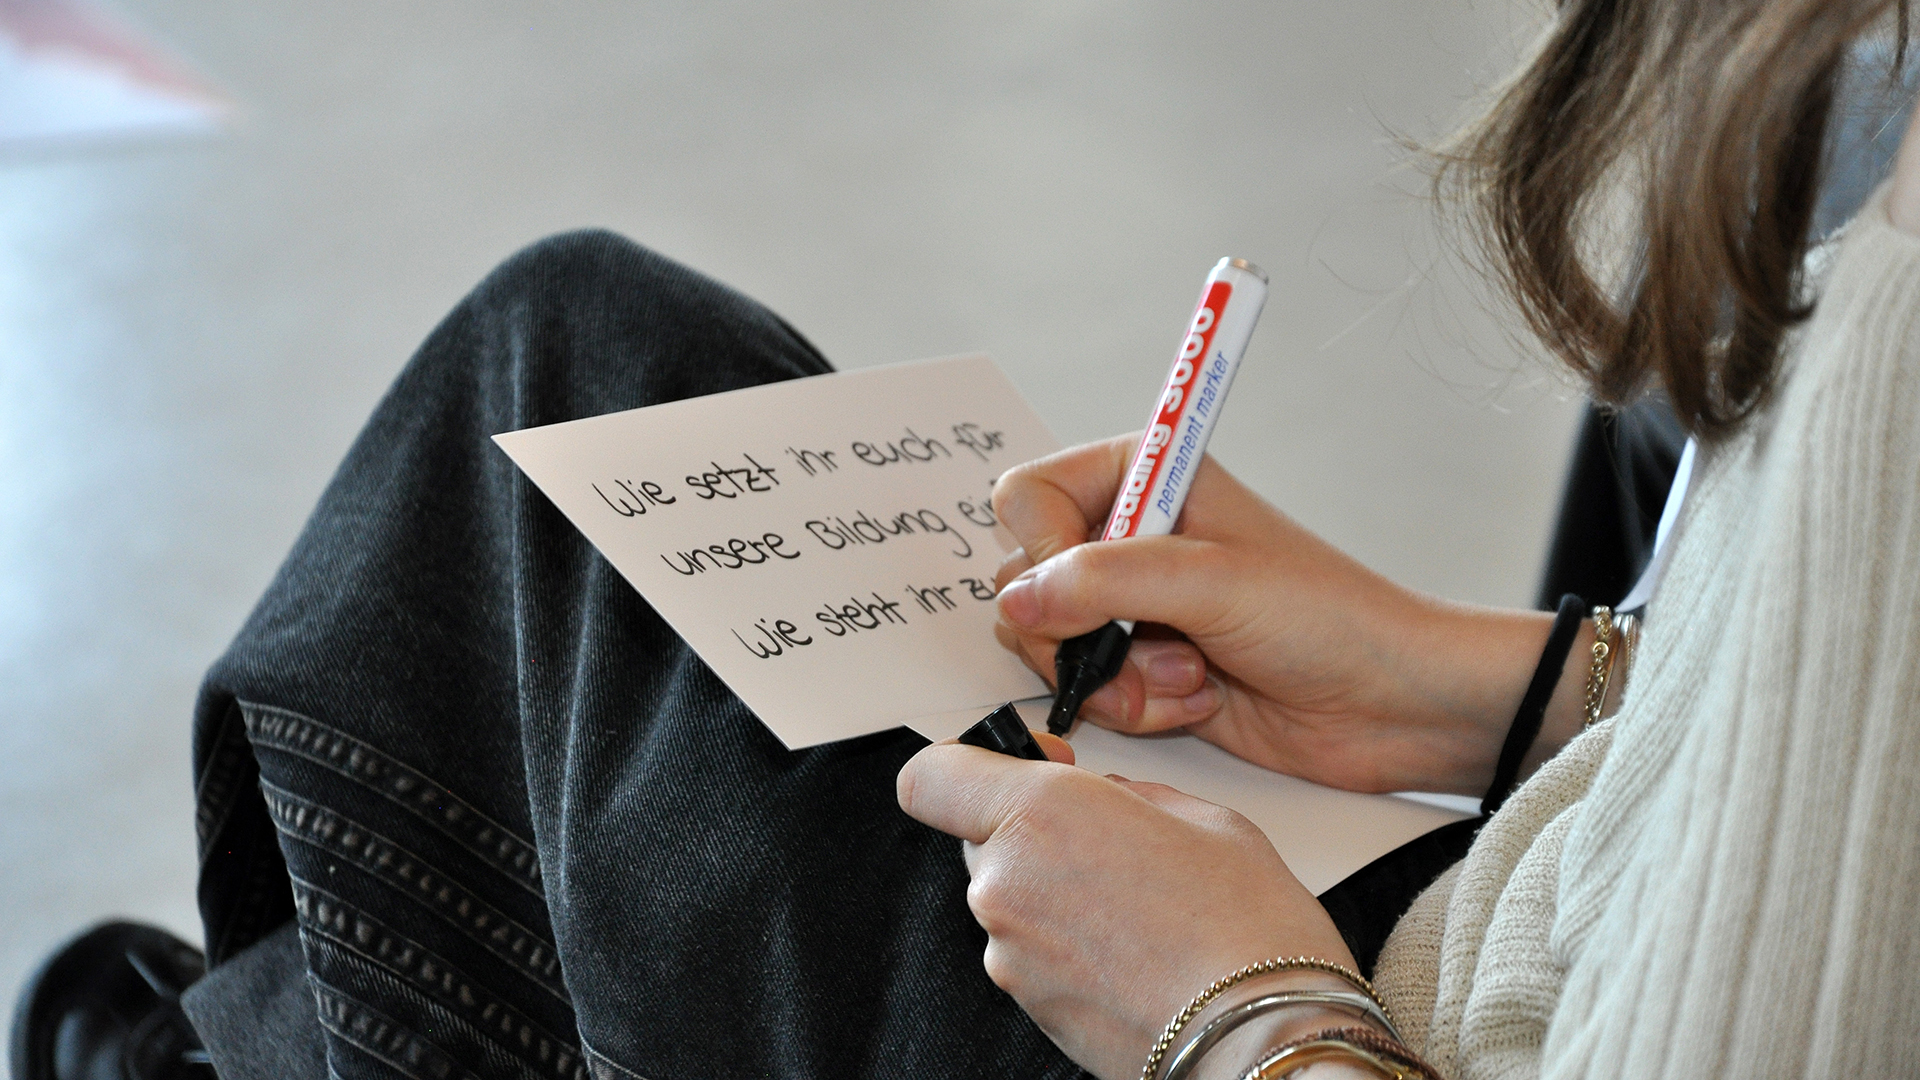 Wie setzt ihr euch für
unsere Bildung ein
Wie steht ihr zu
edding 3000
permanent marker